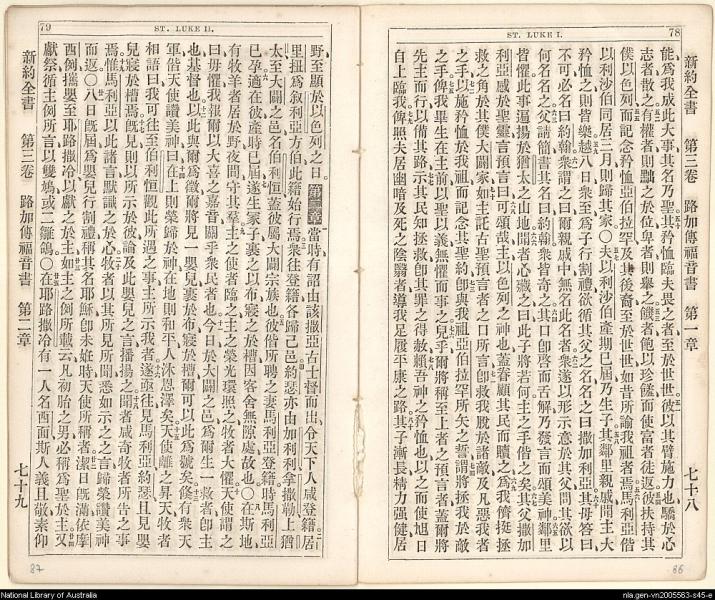 78
ST. LUKE I.
新約全書 第三卷 路加傳福音書 第一章 七十八
能爲我成此大事其名乃聖其矜恤臨夫畏之者至於世世彼以其臂施力也驕於心
志者散之有權者則黜之於位卑者則舉之饑者飽以珍饈而使富者徒返彼扶持其
僕以色列而記念矜恤亞伯拉罕及其後裔至於世世如昔所諭我祖者焉馬利亞偕
以利沙伯同居三月則歸其家〇夫以利沙伯產期已屆乃生子其鄰里親戚聞主大
矜恤之則皆樂越八日衆至爲子行割禮欲循其父之名名之曰撒加利亞其母答曰
不可必名曰約翰衆謂之曰爾親戚中無名此名者衆遂以形示意於其父問其欲以
何名名之父請簡書其名曰約翰衆皆奇之其口卽啓而舌解乃發言而頌美神鄰里
皆懼此事遍揚於猶太之山地聞者心藏之曰此子將若何主之手偕之矣其父撒加
利亞感於聖靈言預言曰可頌哉主以色列之神也蓋眷顧其民而贖之爲我儕挺拯
救之角於其僕大闢家如主託古聖預言者之口所言卽救我脫於諸敵及凡惡我者
之手以施矜恤於我祖而記念其聖約卽與我祖亞伯拉罕所矢之誓謂將拯我於敵
之手俾我畢生在主前以聖以義無懼而事之兒乎爾將稱至上者之預言者蓋爾將
先主而行以備其路示其民知拯救卽其罪之得赦賴吾神之矜恤也以之而使旭日
自上臨我俾照夫居幽暗及死之陰翳者導我足履平康之路其子漸長精力强健居
86
79
ST. LUKE II.
野至顯於以色列之日第二章當時有詔由該撒亞古士督而出令天下人咸登籍居
里扭爲叙利亞方伯此籍始行焉衆往登籍各歸己邑約瑟亦由加利利拿撒勒上猶
太至大闢之邑名伯利恒蓋彼屬大闢宗族也彼偕所聘之妻馬利亞登籍時馬利亞
已孕適在彼產時已屆遂生冢子裹之以布寢之於槽因客舍無隙處故也〇在斯地
有牧羊者居於野夜間守其羣主之使者臨之主之榮光環照之牧者大懼天使謂之
曰毋懼我報爾以大喜之嘉音關乎衆民者也今日於大闢之邑爲爾生一救者卽主
也基督也以此與爾爲徵爾將見一嬰兒裹於布寢於槽爾可以此爲號矣倐有衆天
軍偕天使讚美神曰在上則榮歸於神在地則和平人沐恩澤矣天使離之昇天牧者
相語曰我可往至伯利恒觀此所遇之事主所示我者遂亟往見馬利亞約瑟且見嬰
兒寢於槽焉旣見則以所示於彼論及此嬰兒之言播揚之聞者咸奇牧者所告之事
焉惟馬利亞以此諸言默識之於心牧者以其所見所聞悉如示之之言歸榮讚美神
而返〇八日旣屆爲嬰兒行割禮稱其名耶穌卽未妊時天使所稱者潔日旣滿依摩
西例攜嬰至耶路撒冷以獻之於主如主之例所載云凡初胎之男必稱爲聖於主又
獻祭循主例所言以雙鳩或二雛鴿〇在耶路撒冷有一人名西面斯人義且敬素仰
新約全書 第三卷 路加傳福音書 第二章 七十九
87
National Library of Australia
nla.gen-vn2005563-s45-e